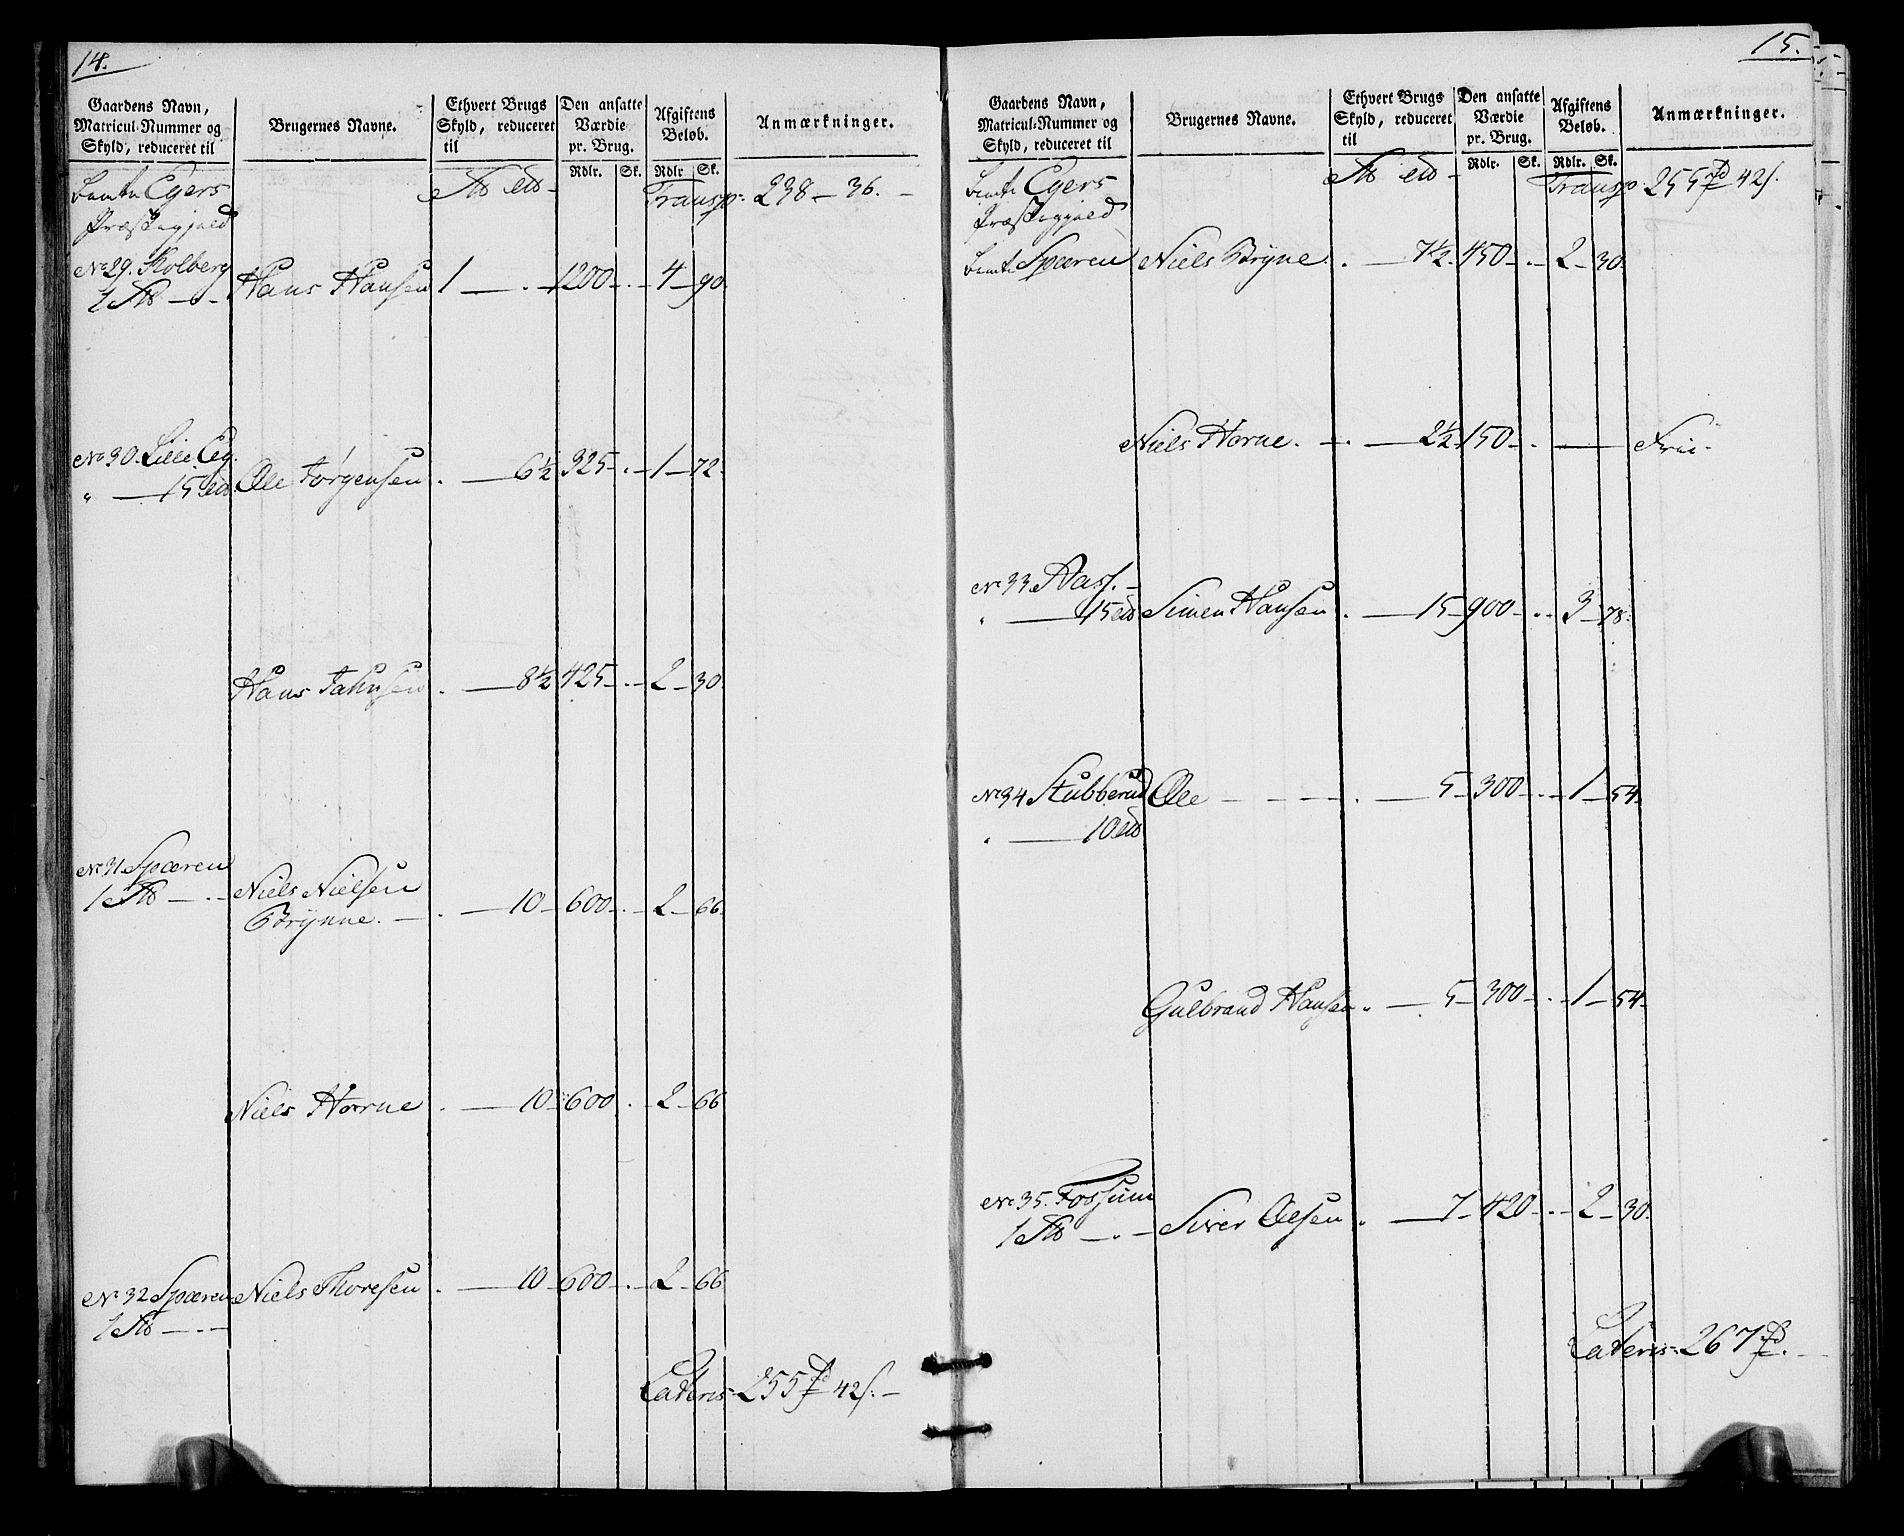 14.
Gaardens Navn, Matricul-Nummer og Skyld, reduceret til
Brugernes Navne.
Ethvert Brugs Skyld, reduceret til
Den ansatte Værdie pr. Brug.
Rdlr. Sk.
Afgiftens Beløb.
Rdlr Sk.
Anmærkninger.
Egers Transp: 238 – 36. –
Præstegjeld
No 29. Kolberg
1 – . – Hans Hansen 1 – . – 1200 – . – 4 – 90.
No 30. Lille Eg.
" – 15 Ole Jørgensen . – 6½ 325 – . – 1 – 72.
Hans Jahnsen . – 8½ 425 – . – 2 – 30.
No 31 Spæren
1 – . – Niels Nielsen
Brynne. – . – 10 – 600 – . – 2 – 66.
Niels Horne . – 10 – 600 . – 2 – 66
No 32 Spæren Niels Thoresen . – 10 – 600 – . – 2 – 66
1 – . –
Lateris 255 42 s. –
15.
Gaardens Navn, Matricul-Nummer og Skyld, reduceret til
Brugernes Navne.
Ethvert Brugs Skyld, reduceret til
Den ansatte Værdie pr. Brug.
Rdlr. Sk.
Afgiftens Beløb.
Rdlr. Sk.
Anmærkninger.
Egers Transp: 255 42 s.
Præstegjeld
Spæren Niels Bryne . – 7½ 450 – . – 2 – 30.
Niels Horne . – . – 2½ 150 – . – Frie.
No 33 Aass. –
" – 15 Simen Hansen . – 15 – 900 – . – 3 – 78.
No 34 Stubberud Ole – – – – . – 5 – 300 – . – 1 – 54.
" – 10
Gulbrand Hansen . – 5 – 300 – . – 1 – 54.
No 35. Fossum
1 – . – Siver Olsen . – 7 – 420 – . – 2 – 30.
Lateris 267 . –